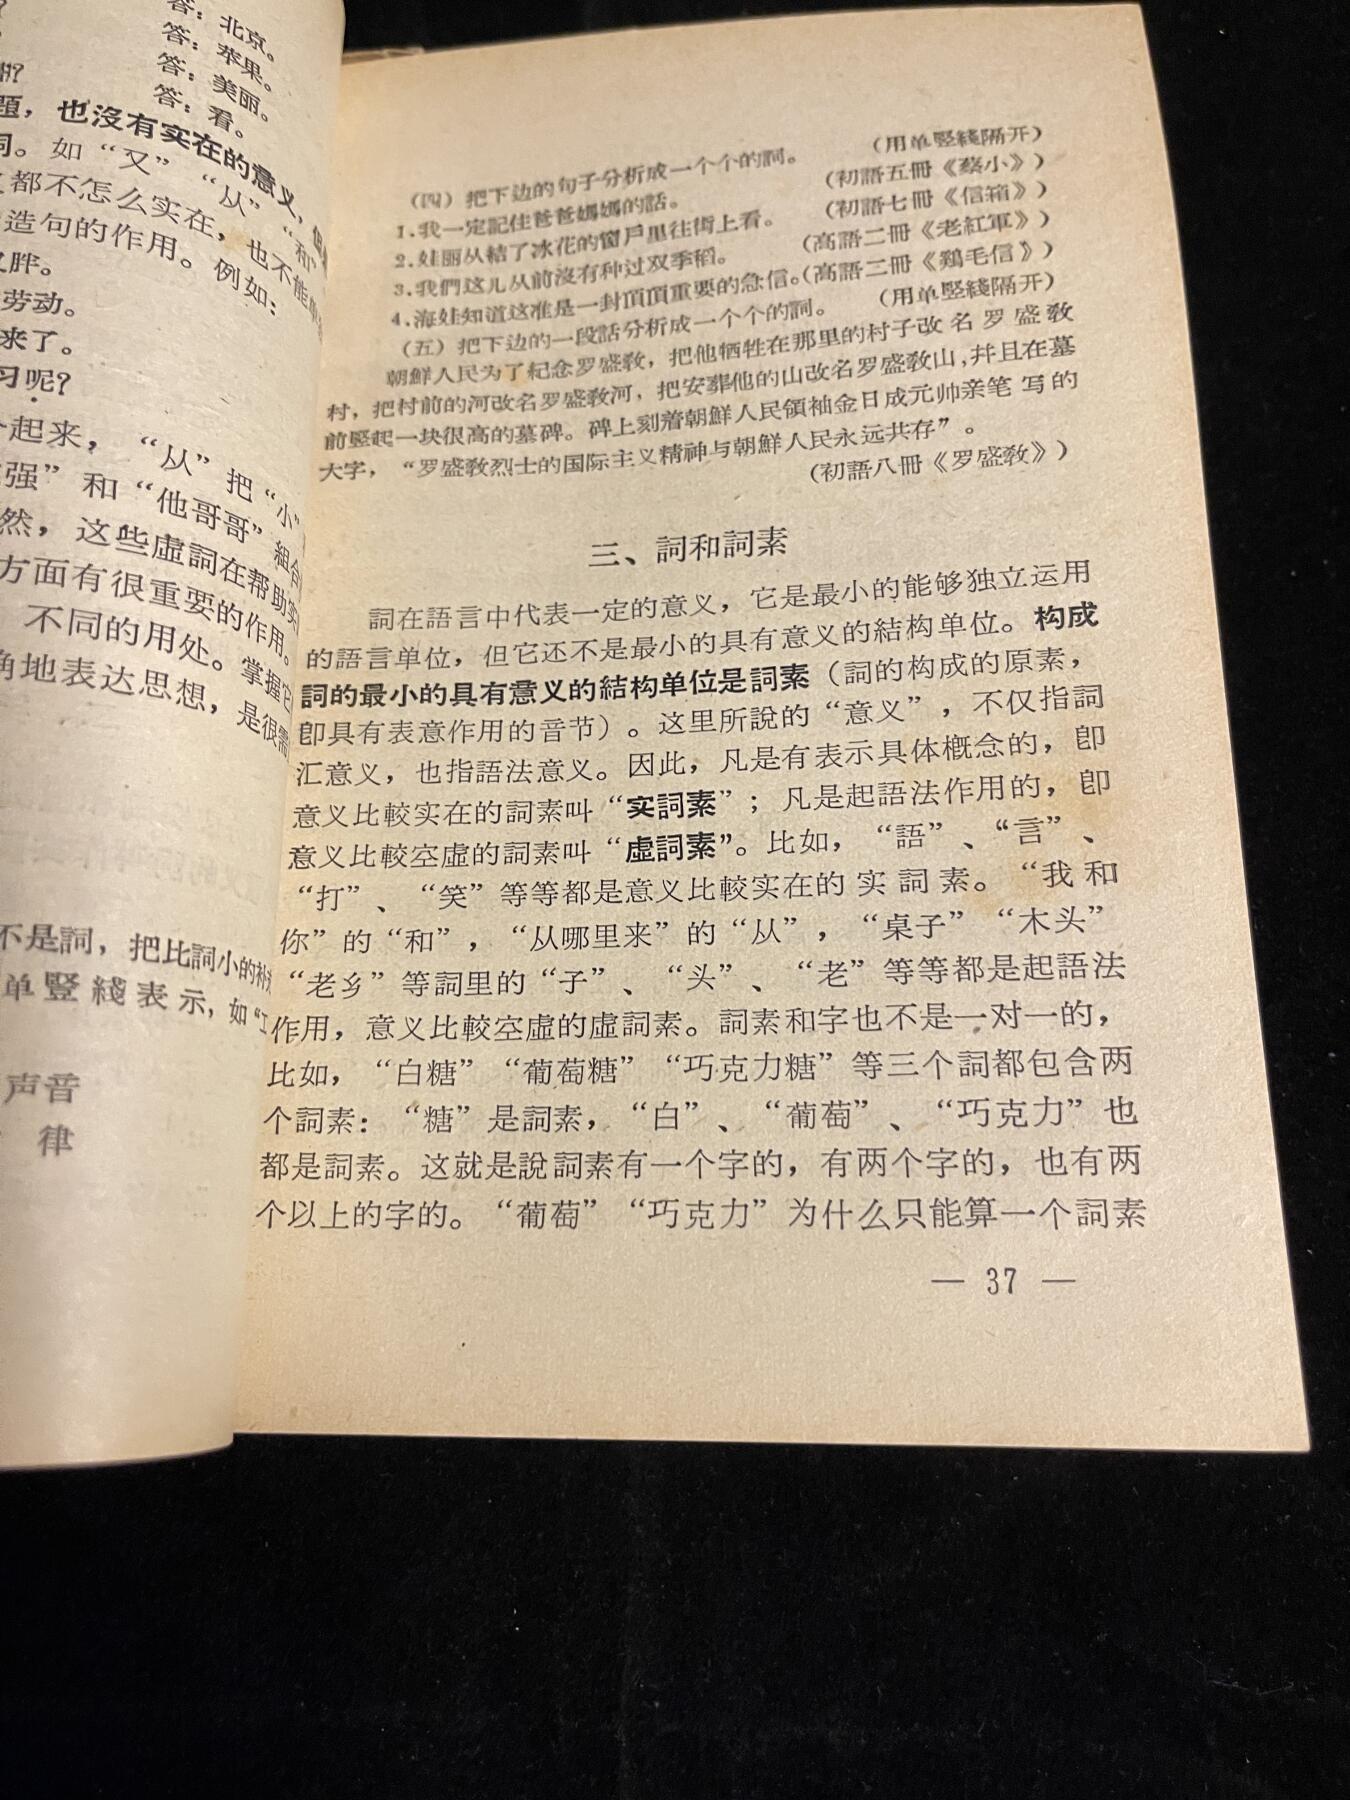 答：北京。
答：苹果。
答：美丽。
答：看。
也沒有实在的意义，
詞。如“又”“从”“和”
都不怎么实在，也不能
造句的作用。例如：
胖。
劳动。
来了。
习呢？
起来，“从”把“小
强”和“他哥哥”組合
然，这些虛詞在帮助实
方面有很重要的作用。
不同的用处。掌握它
确地表达思想，是很需
不是詞，把比詞小的
单竪綫表示，如“工
声音
律
（四）把下边的句子分析成一个个的詞。（用单竪綫隔开）
1.我一定記住爸爸媽媽的話。（初語五冊《蔡小》）
2.娃丽从結了冰花的窗戶里往街上看。（初語七冊《信箱》）
3.我們这儿从前沒有种过双季稻。（高語二冊《老紅軍》）
4.海娃知道这准是一封頂頂重要的急信。（高語二冊《鷄毛信》）
（五）把下边的一段話分析成一个个的詞。（用单竪綫隔开）
朝鮮人民为了紀念罗盛敎，把他牺牲在那里的村子改名罗盛敎
村，把村前的河改名罗盛敎河，把安葬他的山改名罗盛敎山，幷且在墓
前竪起一块很高的墓碑。碑上刻着朝鮮人民領袖金日成元帅亲笔写的
大字，“罗盛敎烈士的国际主义精神与朝鮮人民永远共存”。
（初語八冊《罗盛敎》）
三、詞和詞素
詞在語言中代表一定的意义，它是最小的能够独立运用
的語言单位，但它还不是最小的具有意义的結构单位。构成
詞的最小的具有意义的結构单位是詞素（詞的构成的原素，
卽具有表意作用的音节）。这里所說的“意义”，不仅指詞
汇意义，也指語法意义。因此，凡是有表示具体槪念的，卽
意义比較实在的詞素叫“实詞素”；凡是起語法作用的，卽
意义比較空虛的詞素叫“虛詞素”。比如，“語”、“言”、
“打”、“笑”等等都是意义比較实在的实詞素。“我和
你”的“和”，“从哪里来”的“从”，“桌子”“木头”
“老乡”等詞里的“子”、“头”、“老”等等都是起語法
作用，意义比較空虛的虛詞素。詞素和字也不是一对一的，
比如，“白糖”“葡萄糖”“巧克力糖”等三个詞都包含两
个詞素：“糖”是詞素，“白”、“葡萄”、“巧克力”也
都是詞素。这就是說詞素有一个字的，有两个字的，也有两
个以上的字的。“葡萄”“巧克力”为什么只能算一个詞素
— 37 —